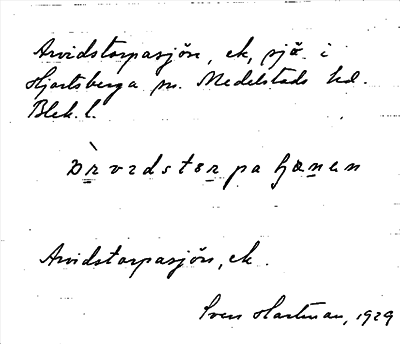 Arvidstorpasjön, ek, sjö i
Hjortsberga sn. Medelstads hd.
Blek. l.
àrvɪdstɜrpaʃɶnɜn
Arvidstorpasjön, ek.
Sven Hartman, 1929